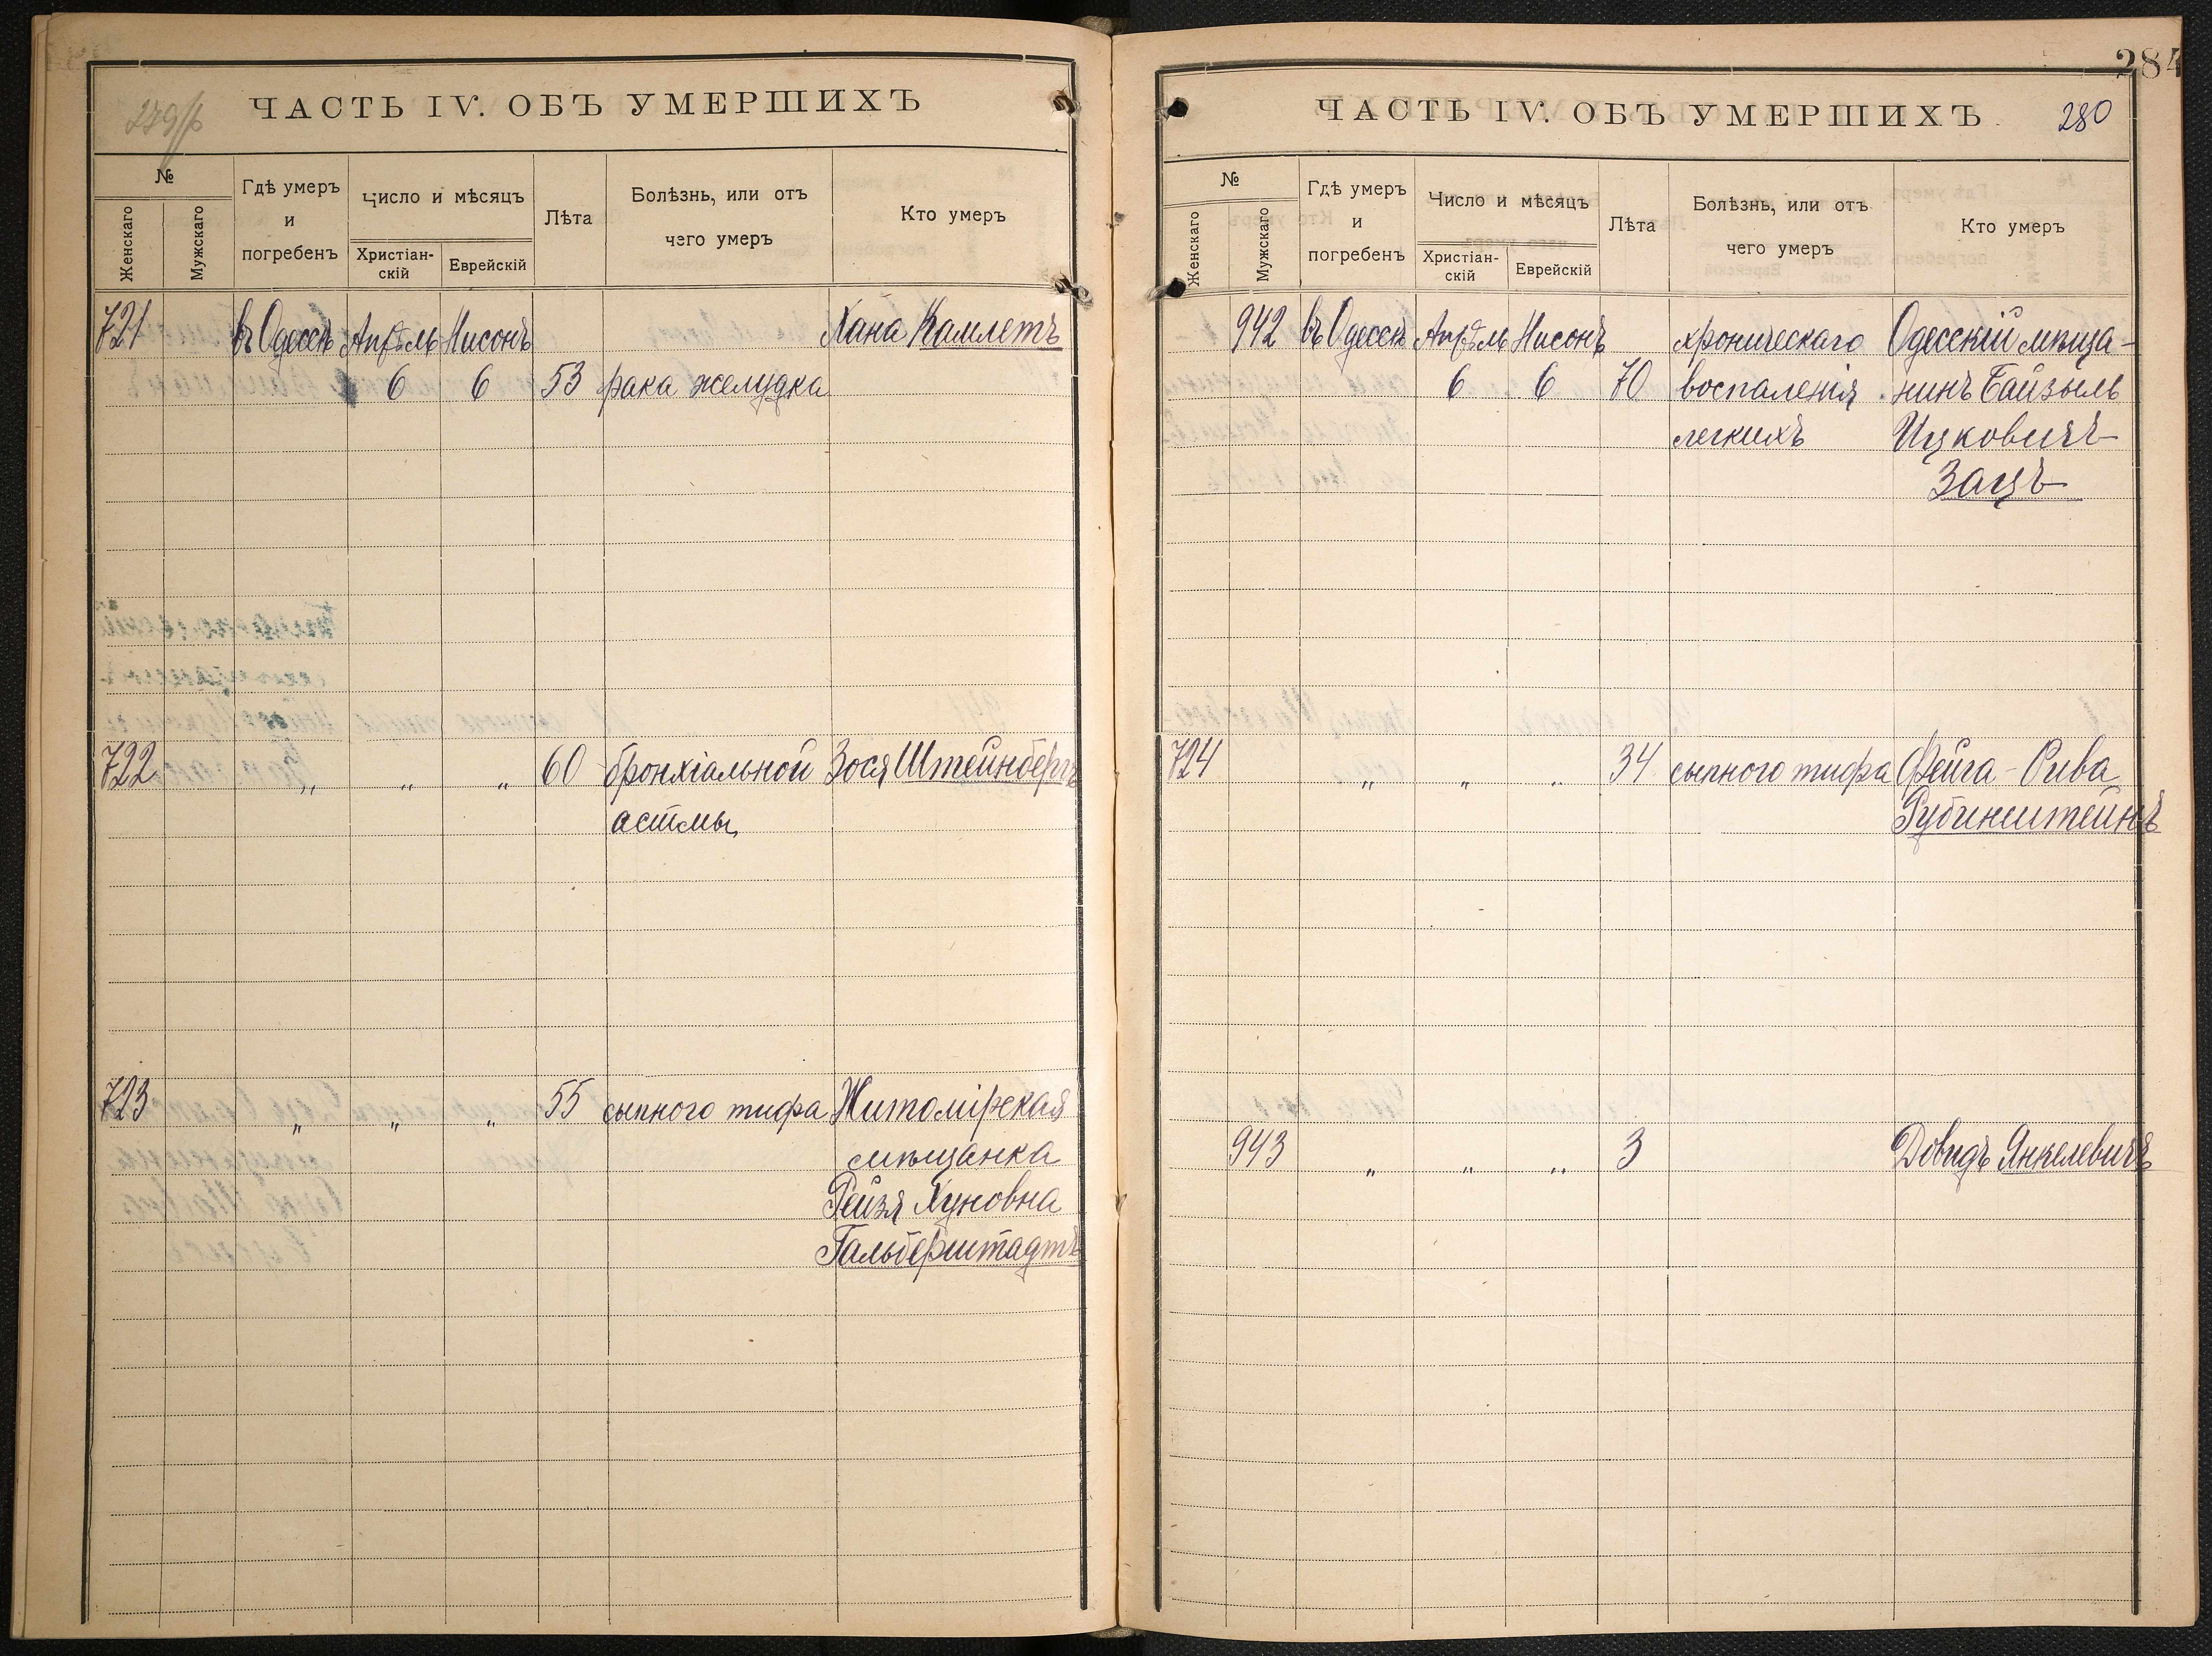 279/б
ЧАСТЬ IV. ОБЪ УМЕРШИХЪ
№
Женскаго
Мужскаго
Гдѣ умеръ
и
погребенъ
Число и мѣсяцъ
Христіан-
скій
Еврейскій
Лѣта
Болѣзнь, или отъ
чего умеръ
Кто умеръ
721 въ Одессѣ Апрѣль Нисонъ Хана Камлетъ
6 6 53 рака желудка
722 „ „ „ 60 бронхіальной Зося Штейнбергъ
астмы
723 „ „ „ 55 сыпного тифа Житомірская
мѣщанка
Рейзя Хуновна
Гальберштадтъ
284
ЧАСТЬ IV. ОБЪ УМЕРШИХЪ 280
№
Женскаго
Мужскаго
Гдѣ умеръ
и
погребенъ
Число и мѣсяцъ
Христіан-
скій
Еврейскій
Лѣта
Болѣзнь, или отъ
чего умеръ
Кто умеръ
942 въ Одессѣ Апрѣль Нисонъ хроническаго Одесскій мѣща-
6 6 70 воспаленія нинъ Байзыль
легкихъ Ицковичъ
Зацъ
724 „ „ „ 34 сыпного тифа Фейга-Рива
Рубинштейнъ
943 „ „ „ 3 Довидъ Янкелевичъ